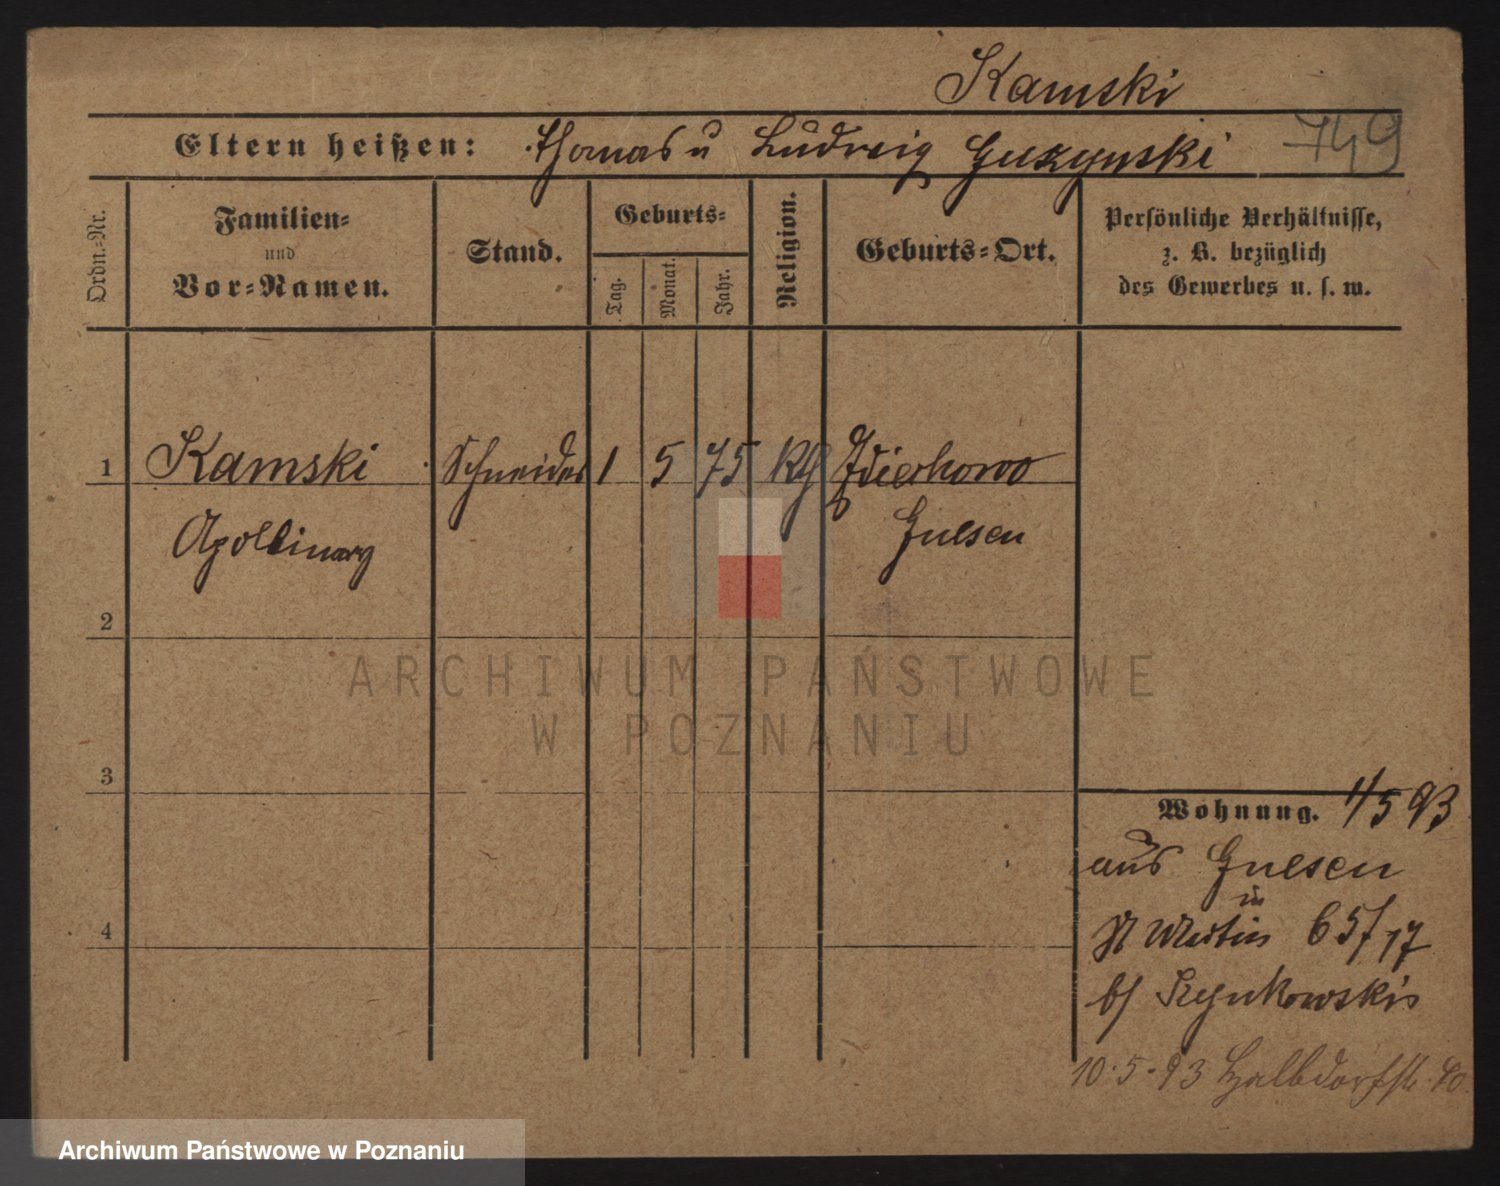 Kamski
Eltern heißen: Thomas u Ludwig Guzynski 749
Ordn.-Nr.
Familien-
und
Vor-Namen.
Stand.
Geburts-
Tag.
Monat.
Jahr.
Religion.
Geburts-Ort.
Persönliche Verhältnisse,
z. B. bezüglich
des Gewerbes u. s. w.
1 Kamski Schneider 1 5 75 Kth Zdierhowo
Apollinary Gnesen
2
3
4
Wohnung. 1/5 93
aus Gnesen
in
St Martin 65/17
b/
10.5.93 Halbdorfstr. 40
ARCHIWUM PAŃSTWOWE
W POZNANIU
Archiwum Państwowe w Poznaniu